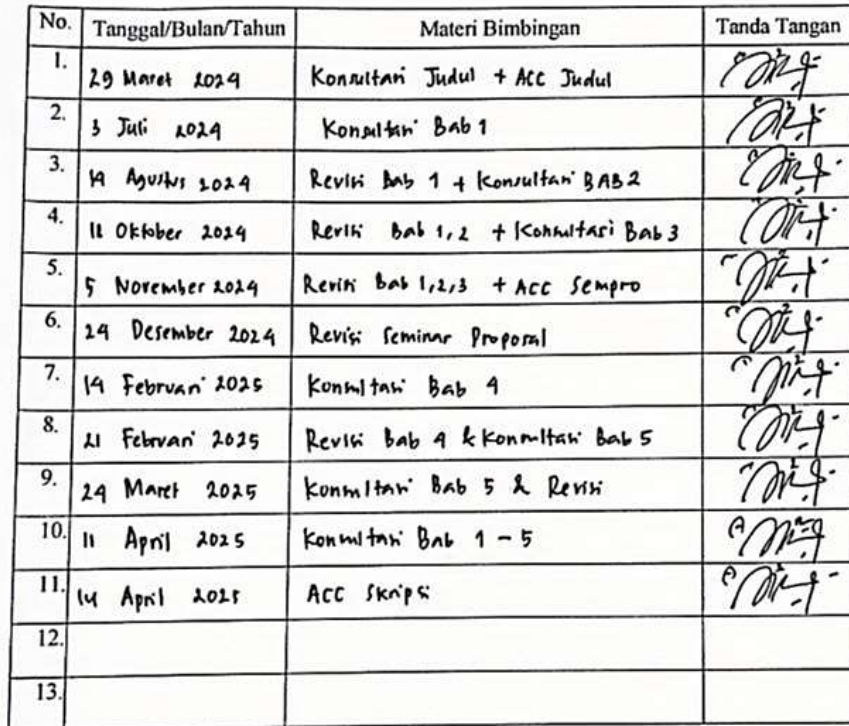 No. Tanggal/Bulan/Tahun Materi Bimbingan Tanda Tangan
1. 29 Maret 2024 Konsultasi Judul + ACC Judul
2. 3 Juli 2024 Konsultasi Bab 1
3. 14 Agustus 2024 Revisi Bab 1 + Konsultasi BAB 2
4. 11 Oktober 2024 Revisi Bab 1,2 + Konsultasi Bab 3
5. 5 November 2024 Revisi Bab 1,2,3 + ACC Sempro
6. 24 Desember 2024 Revisi Seminar Proposal
7. 14 Februari 2025 Konsultasi Bab 4
8. 21 Februari 2025 Revisi Bab 4 & Konsultasi Bab 5
9. 24 Maret 2025 Konsultasi Bab 5 & Revisi
10. 11 April 2025 Konsultasi Bab 1 - 5
11. 14 April 2025 ACC Skripsi
12.
13.